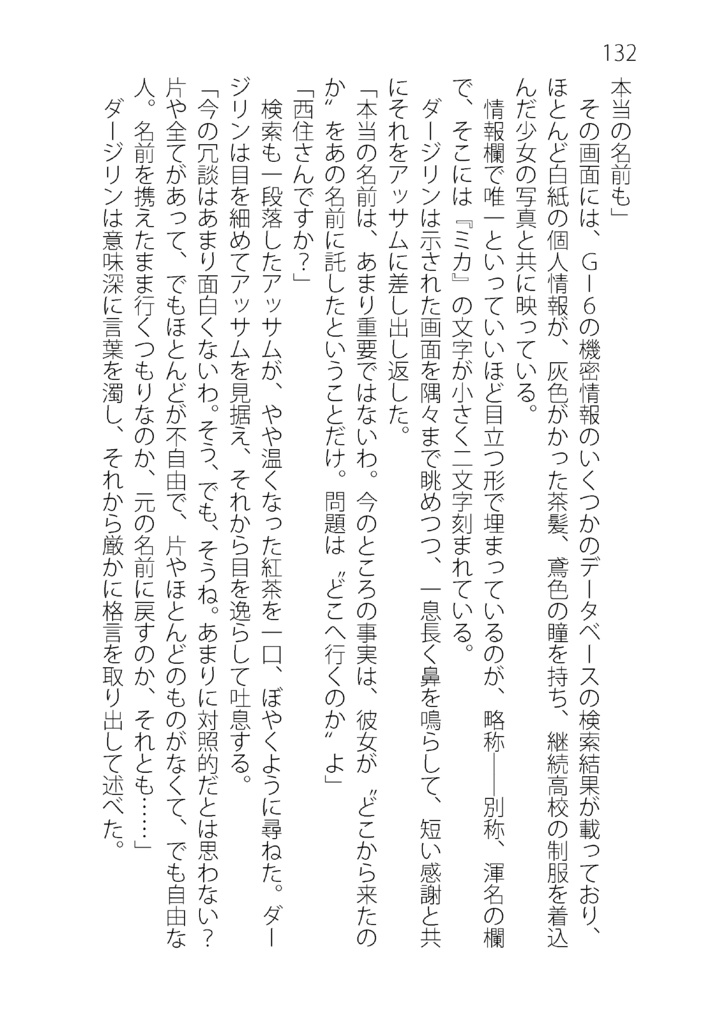 132
本当の名前も」
　その画面には、GI6の機密情報のいくつかのデータベースの検索結果が載っており、
ほとんど白紙の個人情報が、灰色がかった茶髪、鳶色の瞳を持ち、継続高校の制服を着込
んだ少女の写真と共に映っている。
　情報欄で唯一といっていいほど目立つ形で埋まっているのが、略称――別称、渾名の欄
で、そこには『ミカ』の文字が小さく二文字刻まれている。
　ダージリンは示された画面を隅々まで眺めつつ、一息長く鼻を鳴らして、短い感謝と共
にそれをアッサムに差し出し返した。
「本当の名前は、あまり重要ではないわ。今のところの事実は、彼女が〝どこから来たの
か〟をあの名前に託したということだけ。問題は〝どこへ行くのか〟よ」
「西住さんですか？」
　検索も一段落したアッサムが、やや温くなった紅茶を一口、ぼやくように尋ねた。ダー
ジリンは目を細めてアッサムを見据え、それから目を逸らして吐息する。
「今の冗談はあまり面白くないわ。そう、でも、そうね。あまりに対照的だとは思わない？
片や全てがあって、でもほとんどが不自由で、片やほとんどのものがなくて、でも自由な
人。名前を携えたまま行くつもりなのか、元の名前に戻すのか、それとも……」
　ダージリンは意味深に言葉を濁し、それから厳かに格言を取り出して述べた。